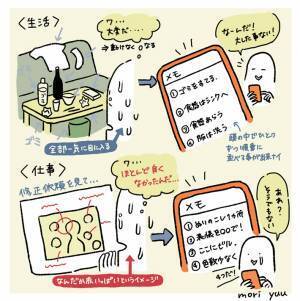 〈生活〉
ワ…
大変だ…
→動けなくなる
ゴミ
全部一気に目に入る
なーんだ!
大した事ない!
メモ
①ゴミをすてる
②食器はシンクへ
③食器あらう
④服は洗う
頭の中でひとつ
ずつ順番に
並べる事が出来ナイ
〈仕事〉
修正依頼を見て…
ワ…
ほとんど良く
なかったんだ…
なんだか赤いっぱいというイメージ
メモ
①ぬりのこし1ヶ所
②表情を〇〇で!
③ここにビル。
④色数少なく
4つだ!
あれ?
そうでもない
mori yuu